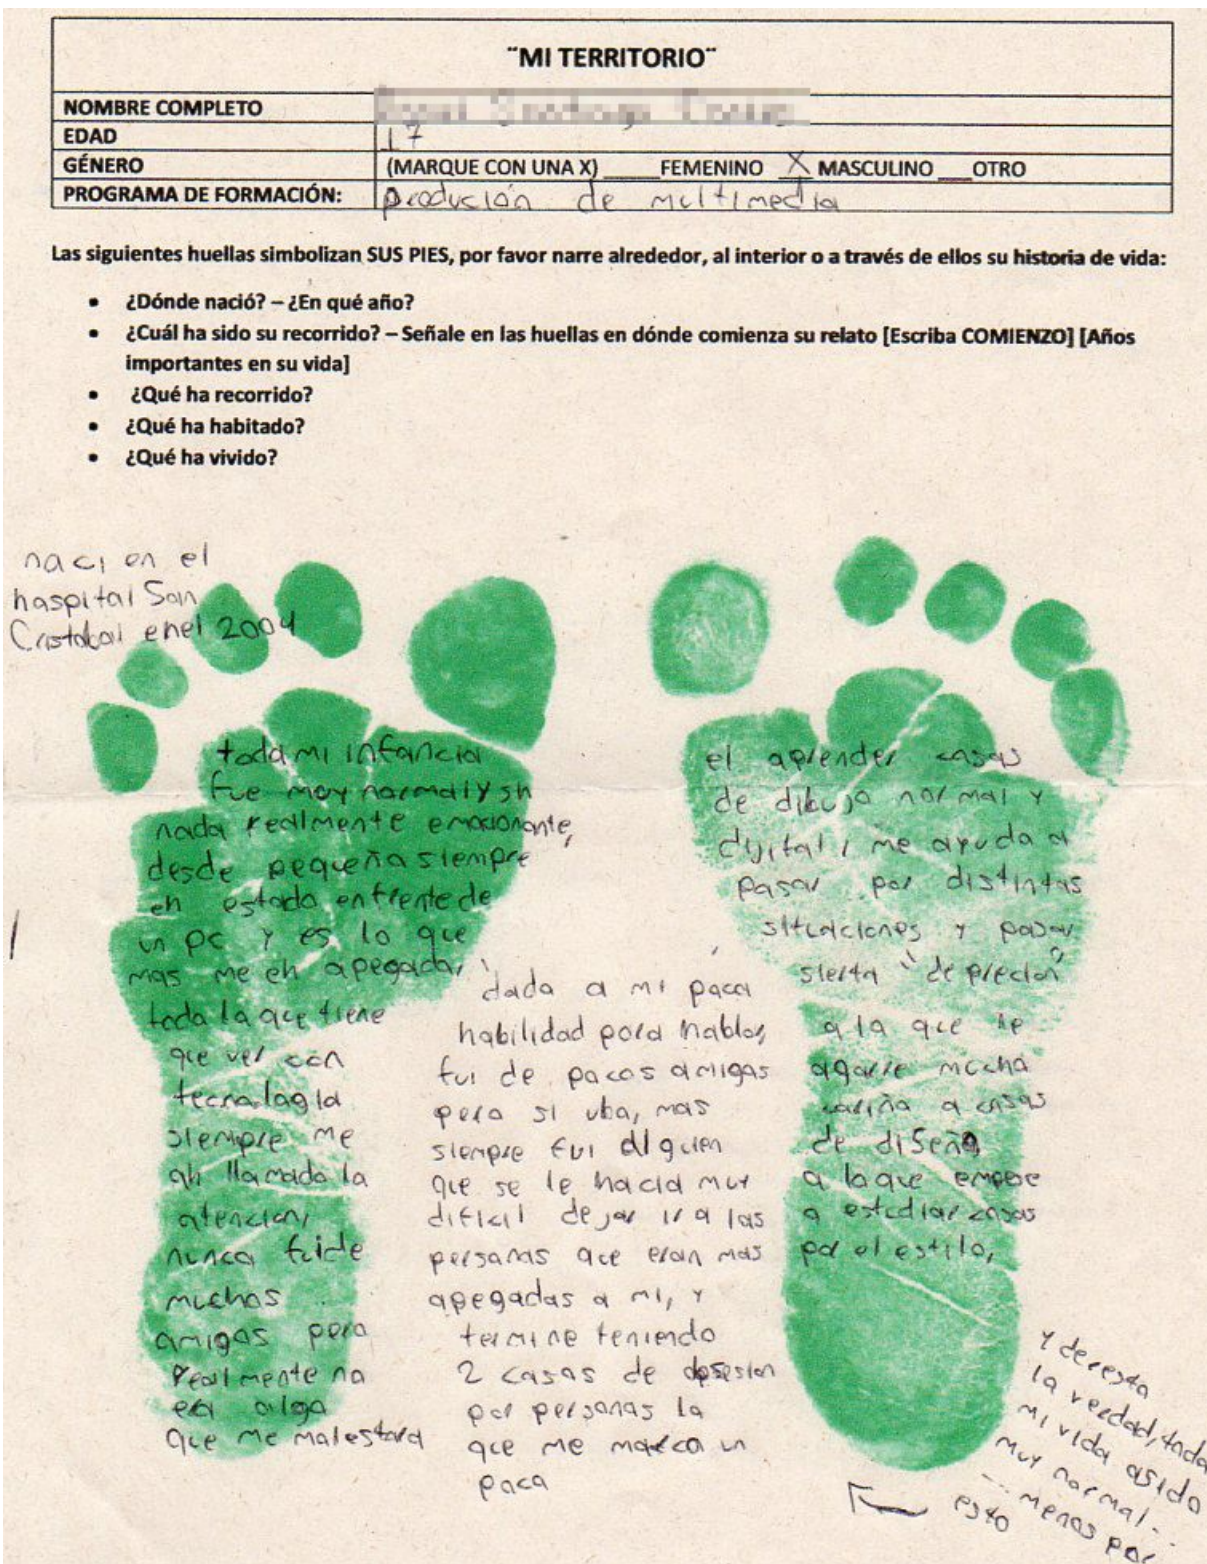 ¨MI TERRITORIO¨
NOMBRE COMPLETO
EDAD 17
GÉNERO (MARQUE CON UNA X) ____FEMENINO _X_ MASCULINO ___OTRO
PROGRAMA DE FORMACIÓN: produción de multimedia
Las siguientes huellas simbolizan SUS PIES, por favor narre alrededor, al interior o a través de ellos su historia de vida:
• ¿Dónde nació? – ¿En qué año?
• ¿Cuál ha sido su recorrido? – Señale en las huellas en dónde comienza su relato [Escriba COMIENZO] [Años
importantes en su vida]
• ¿Qué ha recorrido?
• ¿Qué ha habitado?
• ¿Qué ha vivido?
naci en el
hospital San
Cristobal en el 2004
toda mi infancia
fue muy normal y sin
nada realmente emocionante,
desde pequeño siempre
eh estado enfrente de
un pc y es lo que
mas me eh apegado,
todo lo que tiene
que ver con
tecnologia
siempre me
ah llamado la
atencion,
nunca fui de
muchos
amigos pero
realmente no
era algo
que me malestara
dado a mi poca
habilidad para hablar,
fui de pocos amigos
pero si ubo, mas
siempre fui alguien
que se le hacia muy
dificil dejar ir a las
personas que eran mas
apegadas a mi, y
termine teniendo
2 casos de obsesion
por personas lo
que me marco un
poco
el aprender cosas
de dibujo normal y
digital, me ayudo a
pasar por distintas
situaciones y pasar
sierta "deprecion"
a la que le
agarre mucho
cariño a cosas
de diseño
a lo que empese
a estudiar cosas
por el estilo,
y de resto
la verdad, toda
mi vida asido
muy normal...
... menos por
esto